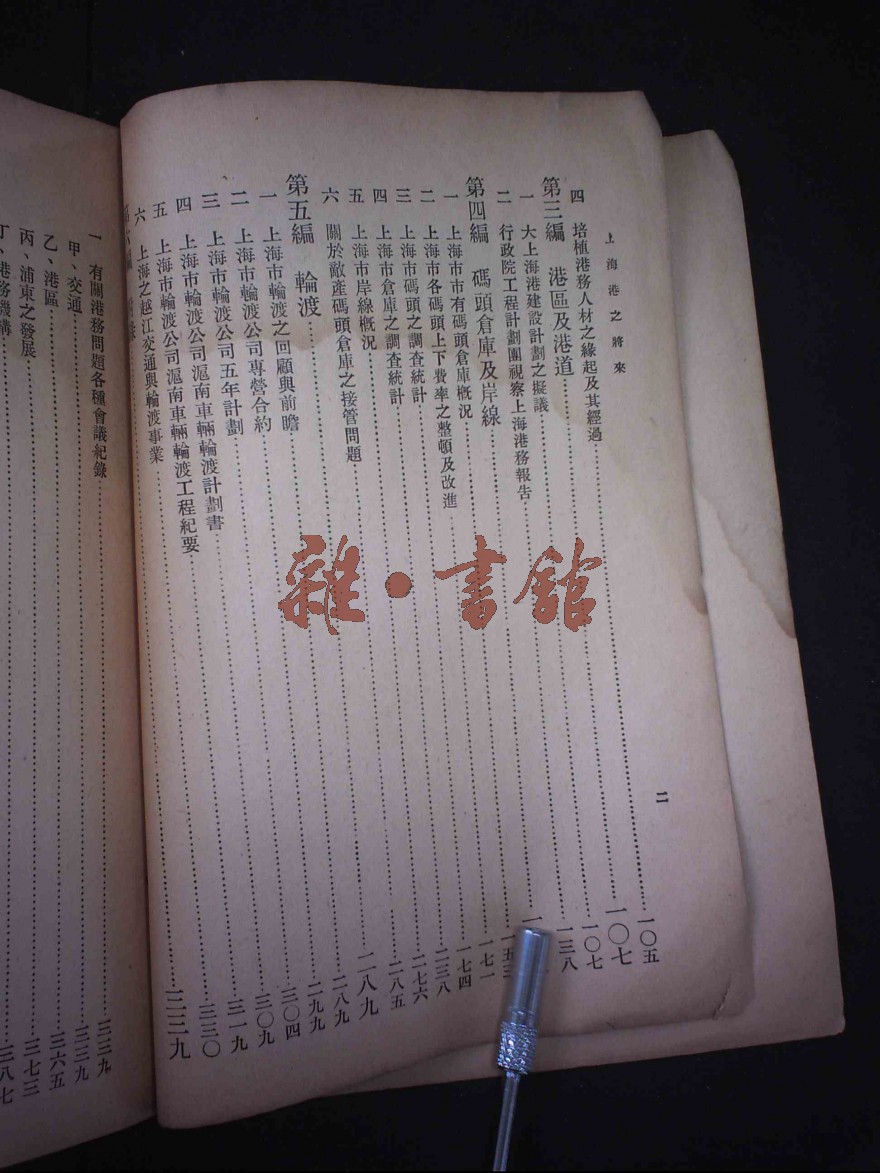 上海港之將來
二
四 培植港務人材之緣起及其經過……一〇五
第三編 港區及港道……一〇七
一 大上海港建設計劃之擬議……一〇七
二 行政院工程計劃團視察上海港務報告……一三八
第四編 碼頭倉庫及岸線……一
一 上海市市有碼頭倉庫概況……一五三
二 上海市各碼頭上下費率之整頓及改進……一七一
三 上海市碼頭之調查統計……一七四
四 上海市倉庫之調查統計……二三八
五 上海市岸線概況……二七六
六 關於敵產碼頭倉庫之接管問題……二八五
第五編 輪渡……二八九
一 上海市輪渡之回顧與前瞻……二八九
二 上海市輪渡公司專營合約……二九九
三 上海市輪渡公司五年計劃……三〇四
四 上海市輪渡公司滬南車輛輪渡計劃書……三〇九
五 上海市輪渡公司滬南車輛輪渡工程紀要……三一九
六 上海之越江交通與輪渡事業……三三〇
第六編 附錄……三三九
一 有關港務問題各種會議紀錄……三三九
甲、交通……三三九
乙、港區……三六五
丙、浦東之發展……三七三
丁、港務機構……三八七
雜·書館